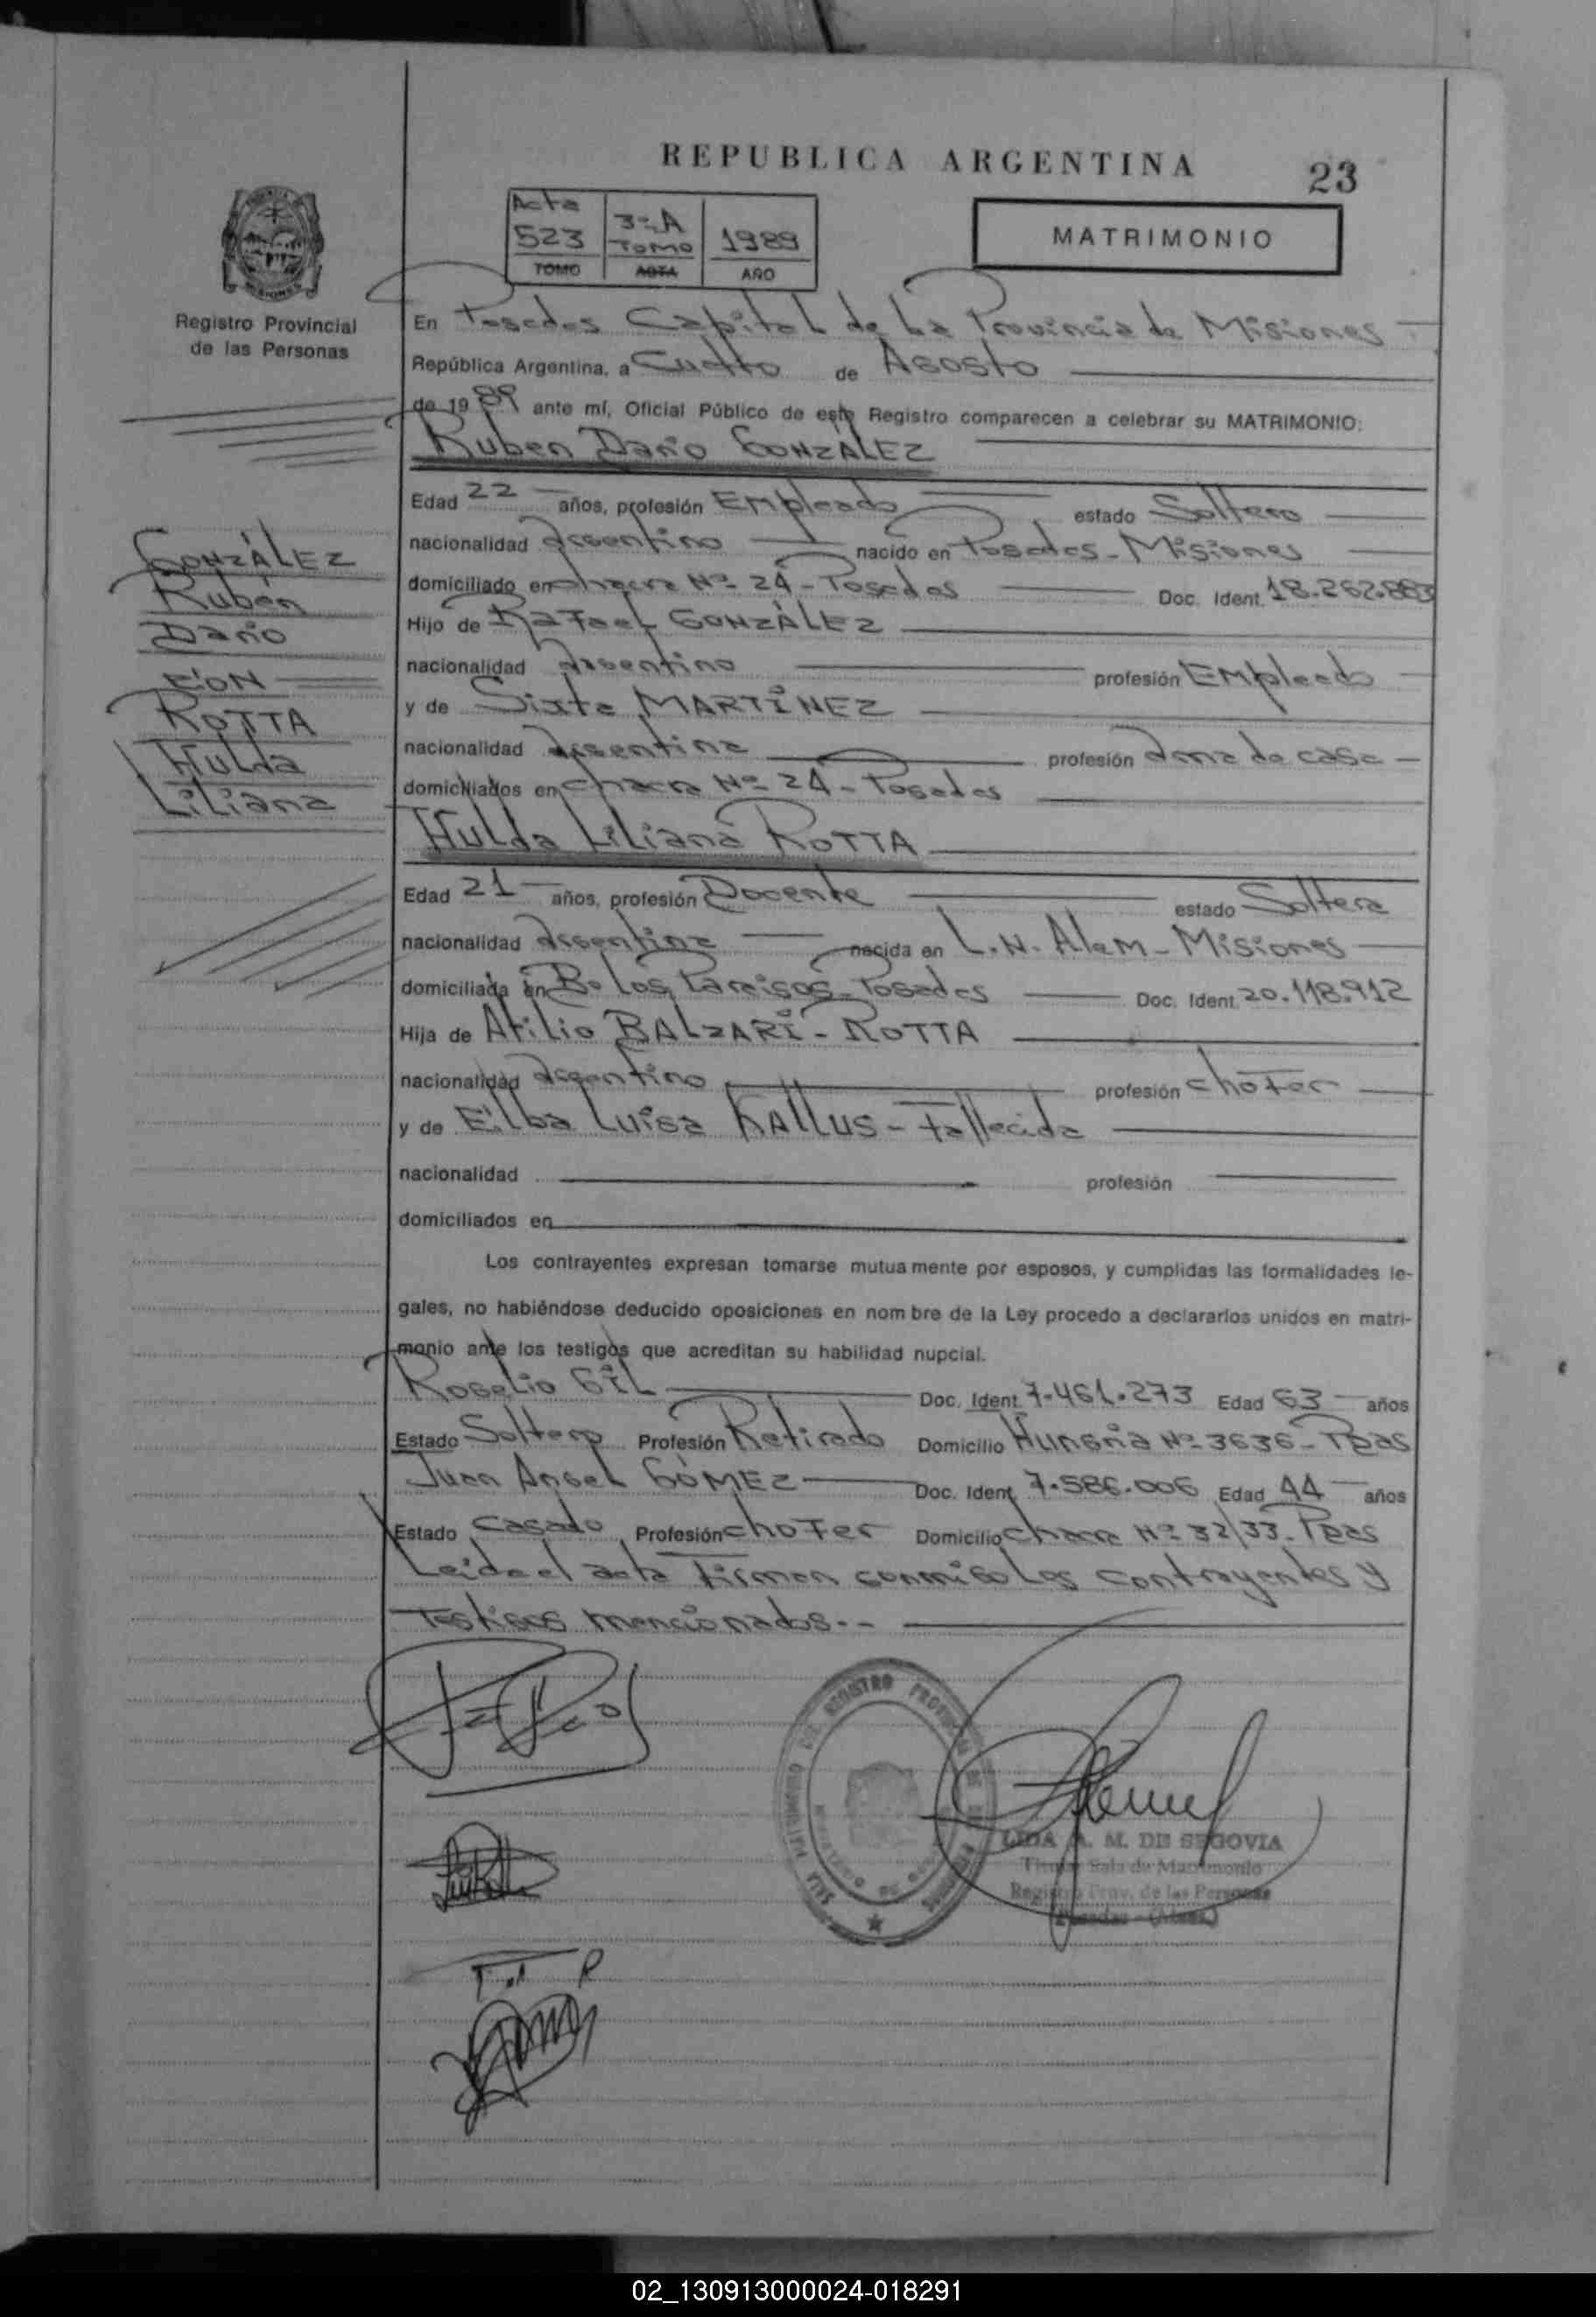 REPUBLICA ARGENTINA
23
Acta 523
TOMO
3º-A Tomo
ACTA
1989
AÑO
MATRIMONIO
Registro Provincial
de las Personas
En Posadas Capital de La Provincia de Misiones
República Argentina, a Cuatro de Agosto
de 1989 ante mí, Oficial Público de este Registro comparecen a celebrar su MATRIMONIO:
Ruben Darío GONZÁLEZ
Edad 22 años, profesión Empleado estado Soltero
nacionalidad argentino nacido en Posadas - Misiones
domiciliado en chacra Nº 24 - Posadas Doc. Ident. 18.262.883
Hijo de Rafael GONZÁLEZ
nacionalidad argentino profesión Empleado
y de Sixta MARTÍNEZ
nacionalidad argentina profesión ama de casa
domiciliados en chacra Nº 24 - Posadas
Hulda Liliana ROTTA
Edad 21 años, profesión Docente estado Soltera
nacionalidad argentina nacida en L.N. Alem - Misiones
domiciliada en Bº Los Paraisos - Posadas Doc. Ident. 20.118.912
Hija de Atilio BALZARI - ROTTA
nacionalidad argentino profesión chofer
y de Elba Luisa KALLUS - Fallecida
nacionalidad profesión
domiciliados en
Los contrayentes expresan tomarse mutuamente por esposos, y cumplidas las formalidades le-
gales, no habiéndose deducido oposiciones en nombre de la Ley procedo a declararlos unidos en matri-
monio ante los testigos que acreditan su habilidad nupcial.
Rogelio GIL Doc. Ident. 7.461.273 Edad 63 años
Estado Soltero Profesión Retirado Domicilio Hungría Nº 3636 - Pdas
Juan Angel GÓMEZ Doc. Ident. 7.586.006 Edad 44 años
Estado Casado Profesión chofer Domicilio chacra Nº 32/33 - Pdas
Leida el acta Firman conmigo Los contrayentes y
Testigos mencionados.-
GONZÁLEZ
Rubén
Darío
CON
ROTTA
Hulda
Liliana
LIDA A. M. DE SEGOVIA
Titular Sala de Matrimonio
Registro Prov. de las Personas
Posadas - (Mnes.)
02_130913000024-018291